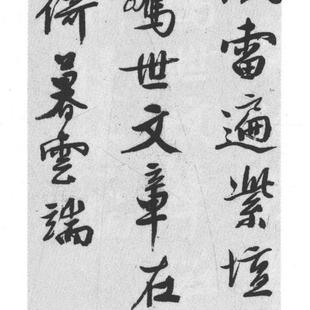 雷遍紫壇
驚世文章在
倚暮雲端